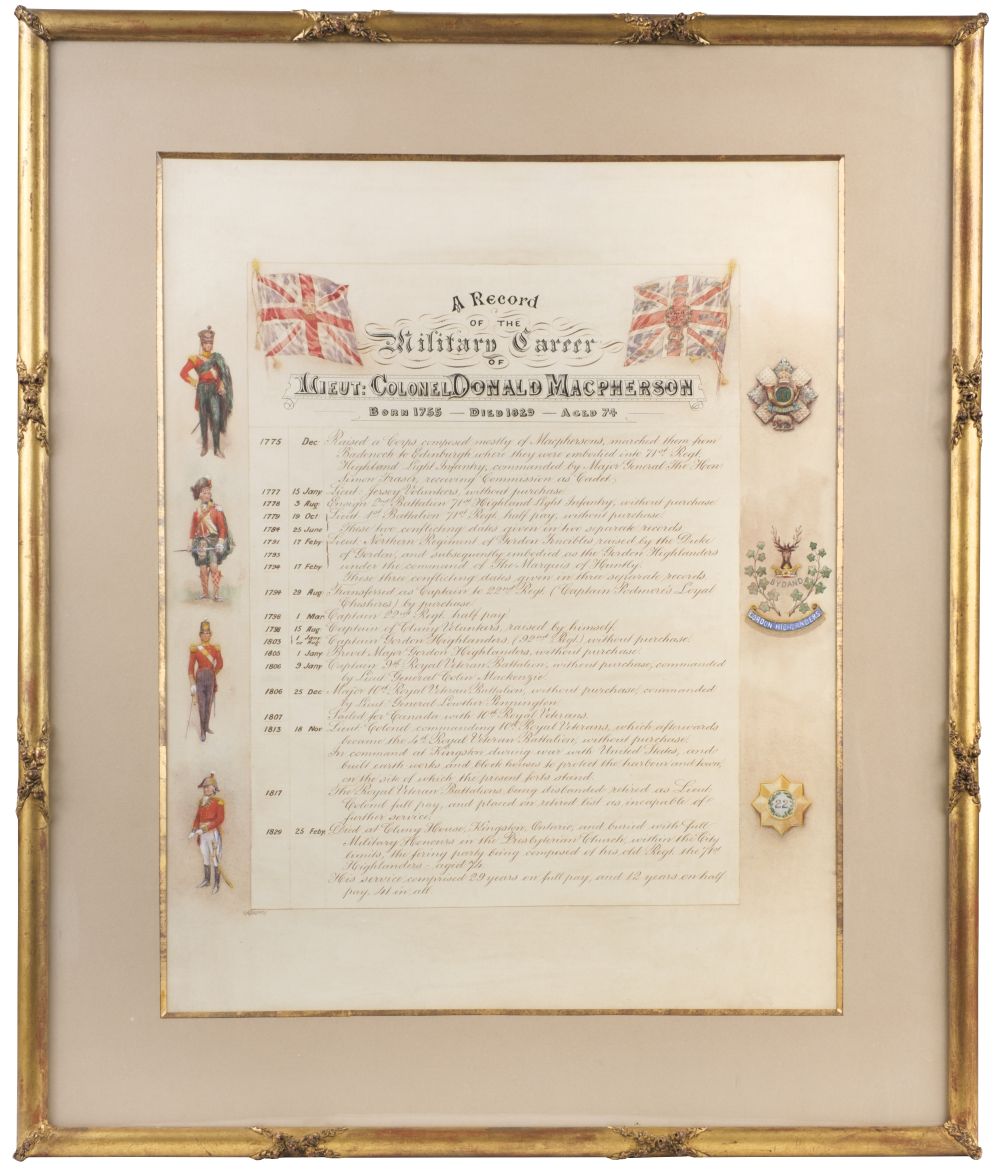 A Record
OF THE
Military Career
OF
LIEUT: COLONEL DONALD MACPHERSON
BORN 1755 — DIED 1829 — AGED 74
1775 Dec Raised a Corps composed mostly of Macphersons, marched them from
Badenoch to Edinburgh where they were embodied into 71st Regt
Highland Light Infantry, commanded by Major General The Hon
Simon Fraser, receiving Commission as Cadet.
1777 15 Jany Lieut Jersey Volunteers, without purchase
1778 3 Aug Ensign 2nd Battalion 71st Highland Light Infantry, without purchase
1779 19 Oct Lieut 1st Battalion 71st Regt half pay, without purchase.
1784 25 June These two conflicting dates given in two separate records
1791 17 Feby Lieut Northern Regiment of Gordon Fencibles raised by the Duke
1793 of Gordon, and subsequently embodied as the Gordon Highlanders
1794 17 Feby under the command of The Marquis of Huntly.
These three conflicting dates given in three separate records.
1794 29 Aug Transferred as Captain to 22nd Regt (Captain Podmore's Loyal
Cheshires) by purchase
1798 1 Mar Captain 22nd Regt half pay
1798 15 Aug Captain of Cluny Volunteers, raised by himself.
1803 1 Jany or Aug Captain Gordon Highlanders (92nd Regt) without purchase.
1805 1 Jany Brevet Major Gordon Highlanders, without purchase.
1806 9 Jany Captain 9th Royal Veteran Battalion, without purchase, commanded
by Lieut General Colin Mackenzie.
1806 25 Dec Major 10th Royal Veteran Battalion, without purchase, commanded
by Lieut General Lowther Pennington
1807 Sailed for Canada with 10th Royal Veterans.
1813 18 Nov Lieut Colonel commanding 10th Royal Veterans, which afterwards
became the 4th Royal Veteran Battalion, without purchase.
In command at Kingston during war with United States, and
built earth works and block houses to protect the harbour and town,
on the site of which the present forts stand.
1817 The Royal Veteran Battalions being disbanded retired as Lieut
Colonel full pay, and placed on retired list as incapable of
further service.
1829 25 Feby Died at Cluny House, Kingston, Ontario, and buried with full
Military Honours in the Presbyterian Church, within the City
limits, the firing party being composed of his old Regt the 71st
Highlanders - aged 74
His service comprised 29 years on full pay, and 12 years on half
pay, 41 in all
BYDAND
GORDON HIGHLANDERS
22